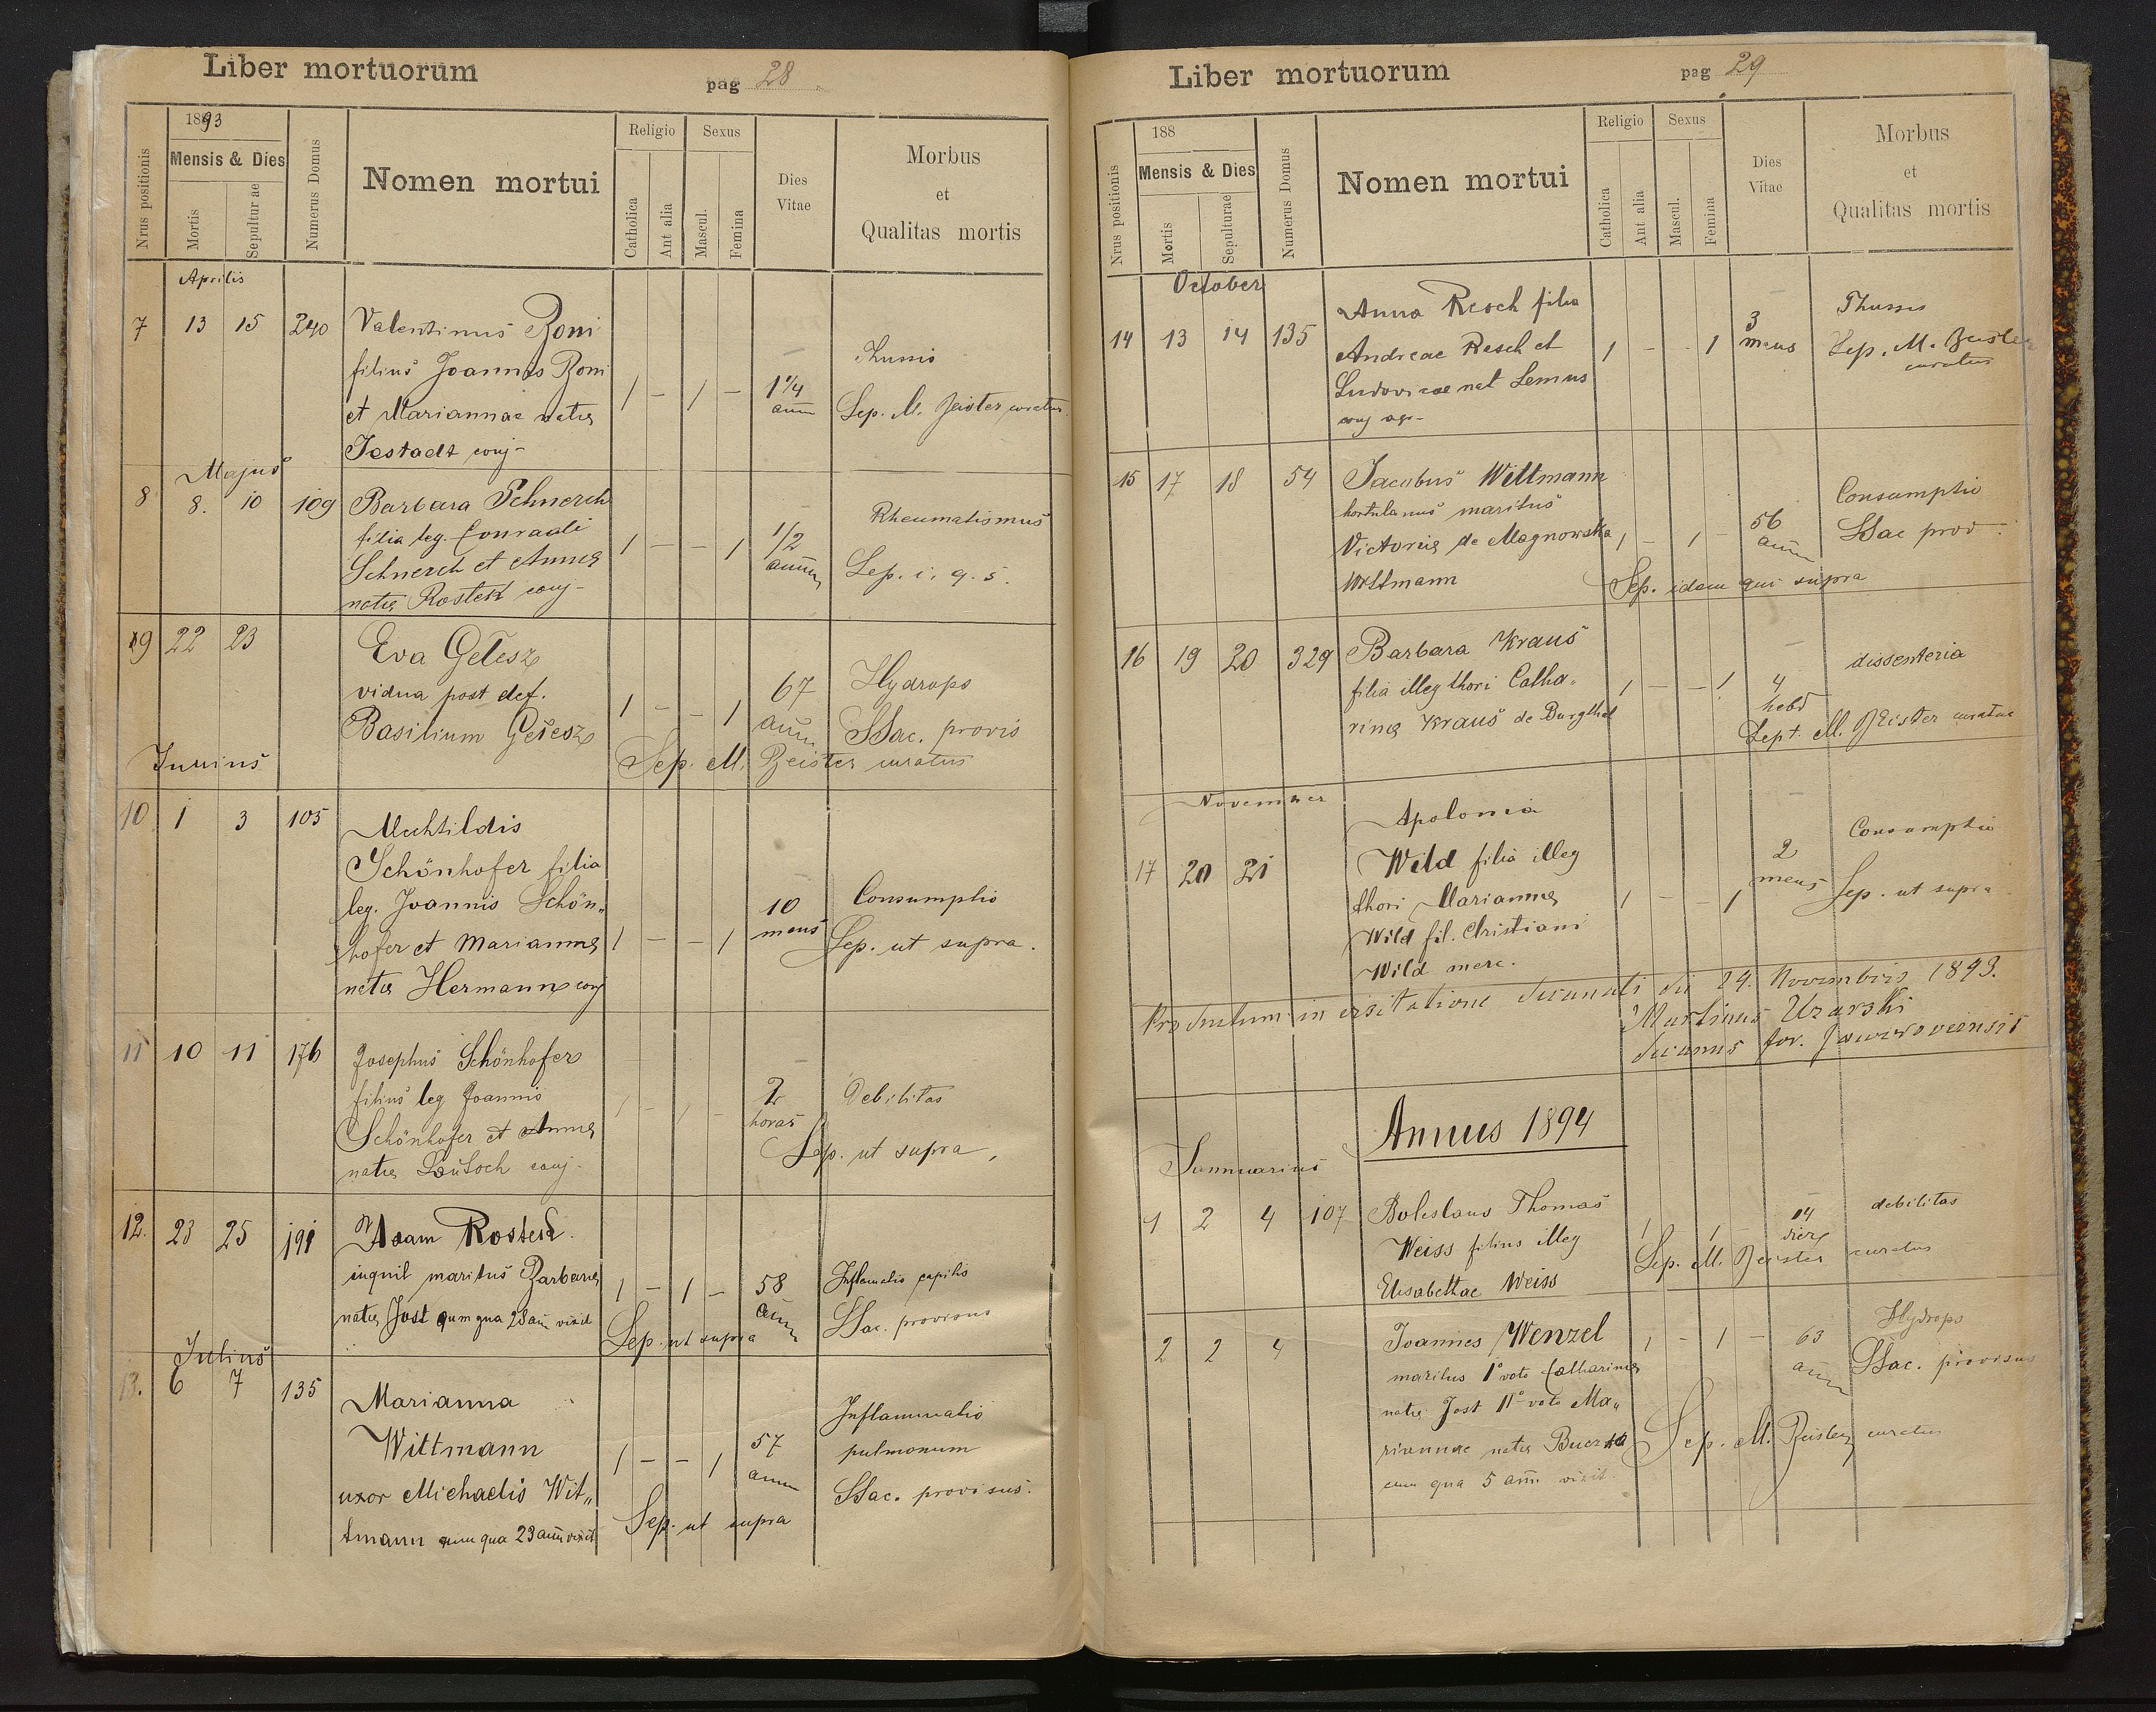 Liber mortuorum pag 28
1893
Nrus positionis
Mensis & Dies
Mortis
Sepulturae
Numerus Domus
Nomen mortui
Religio
Catholica
Ant alia
Sexus
Mascul.
Femina
Dies
Vitae
Morbus
et
Qualitas mortis
Aprilis
7 13 15 240 Valentinus Roni
filius Joannis Roni
et Mariannae natae
Jestadt conj-
1 - 1 - 1 1/4
ann
Tussis
Sep. M. Beister curatus
Majus
8 8. 10 109 Barbara Schnerch
filia leg. Conradi
Schnerch et Annae
natae Rostek conj-
1 - - 1 1/2
annu
Rheumatismus
Sep. i. q. s.
9 22 23
Eva Gelesz
vidua post def.
Basilium Gelesz
1 - - 1 67
ann
Hydrops
SSac. provis
Sep. M. Beister curatus
Junius
10 1 3 105 Mechtildis
Schönhofer filia
leg. Joannis Schön„
hofer et Mariannae
natae Hermann conj
1 - - 1 10
mens
Consumptio
Sep. ut supra.
11 10 11 176 Josephus Schönhofer
filius leg Joannis
Schönhofer et Annae
natae conj.
1 - 1 - 2
horas
Debilitas
Sep. ut supra,
12. 23 25 191 Adam Rosteck.
inquil maritus Barbarae
natae Jost qum qua 28 ann vixit
1 - 1 - 58
ann
Inflamatio capitis
SSac. provisus
Sep. ut supra
Julius
13. 6 7 135 Marianna
Wittmann
uxor Michaelis Wit„
tmann qum qua 23 ann vixit
1 - - 1 57
ann
Inflammatio
pulmonum
SSac. provisus.
Sep. ut supra
Liber mortuorum pag 29
188
Nrus positionis
Mensis & Dies
Mortis
Sepulturae
Numerus Domus
Nomen mortui
Religio
Catholica
Ant alia
Sexus
Mascul.
Femina
Dies
Vitae
Morbus
et
Qualitas mortis
October
14 13 14 135 Anna Resch filia
Andreae Resch et
Ludovicae nat Lemus
conj agr-
1 - - 1 3
mens
Thussis
Sep. M. Beister
curatus
15 17 18 54 Jacobus Wittmann
hortulanus maritus
Victoriae de Magnowska
Wittmann
1 - 1 - 56
ann
Consumptio
SSac prov.
Sep. idem qui supra
16 19 20 329 Barbara Kraus
filia illeg thori Catha„
rinae Kraus de Burgthal
1 - - 1 4
hebd
dissenteria
Sept. M. Beister curatus
November
17 20 21 Apolonia
Wild filia illeg
thori Mariannae
Wild fil. Christiani
Wild merc.
1 - - 1 2
mens
Consumptio
Sep. ut supra.
Productum in visitatione decanali die 29. Novembris 1893.
Martinus Uzarski
decanus for. Jaworoviensis
Annus 1894
Januarius
1 2 4 107 Boleslaus Thomas
Weiss filius illeg
Elisabethae Weiss
1 1 - 14
dies
debilitas
Sep. M. Beister curatus
2 2 4 Joannes Wenzel
maritus 1° voto Catharinae
natae Jost II° voto Ma„
riannae natae
cum qua 5 ann vixit.
1 - 1 - 63
ann
Hydrops
SSac. provisus
Sep. M. Beister curatus